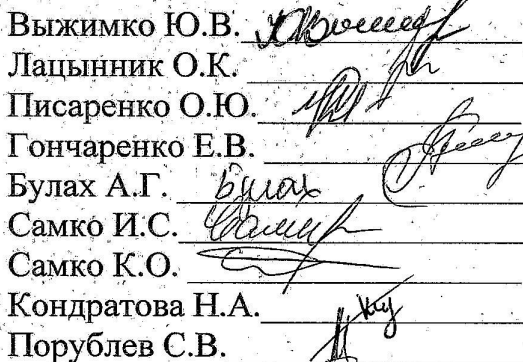 Выжимко Ю.В.
Лацынник О.К.
Писаренко О.Ю.
Гончаренко Е.В.
Булах А.Г. Булах
Самко И.С.
Самко К.О.
Кондратова Н.А.
Порублев С.В.